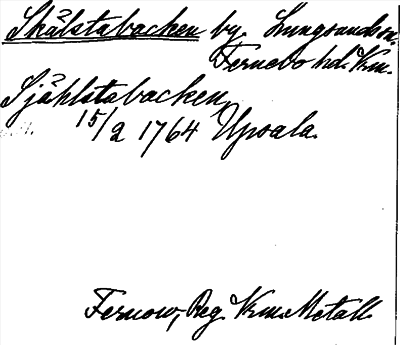 Skälstabacken by. Lungsundss:n.
Fernebo hd. Vrm.
Sjählstabacken,
15/2 1764 Upsala.
Fernow, Reg. Vrm. Metall.